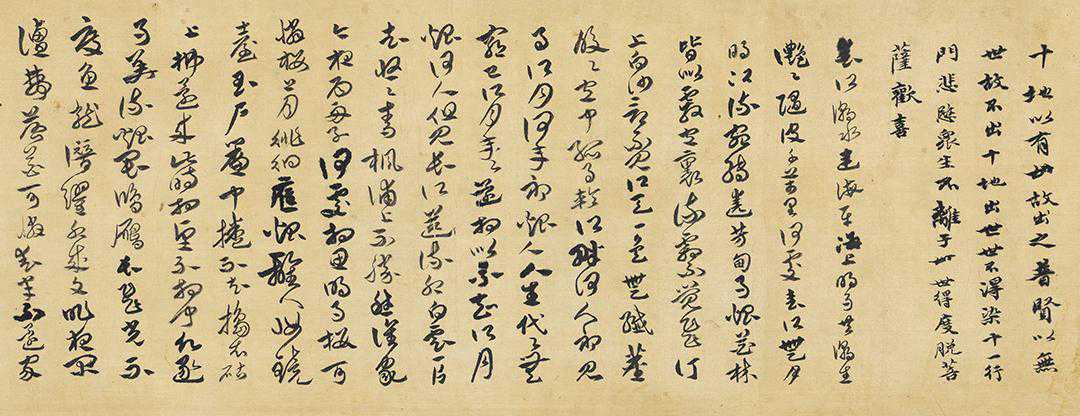 十地以有世故出之普賢以無
世故不出十地出世世不得染十一行
門悲雖衆生不離于世世得度脫菩
薩歡喜
春江潮水連海平海上明月共潮生
灧々隨波千萬里何處春江無月
明江流宛轉遶芳甸月照花林
皆似霰空裏流霜不覺飛汀
上白沙看不見江天一色無纖塵
皎々空中孤月輪江畔何人初見
月江月何年初照人人生代々無
窮已江月年々祗相似不知江月
照何人但見長江送流水白雲一片
去悠々青楓浦上不勝愁誰家
今夜扁舟子何處相思明月樓可
憐樓上月徘徊應照離人妝鏡
臺玉戶簾中捲不去擣衣砧
上拂還來此時相望不相聞願逐
月華流照君鴻雁長飛光不
度魚龍潛躍水成文昨夜閒
潭夢落花可憐春半不還家